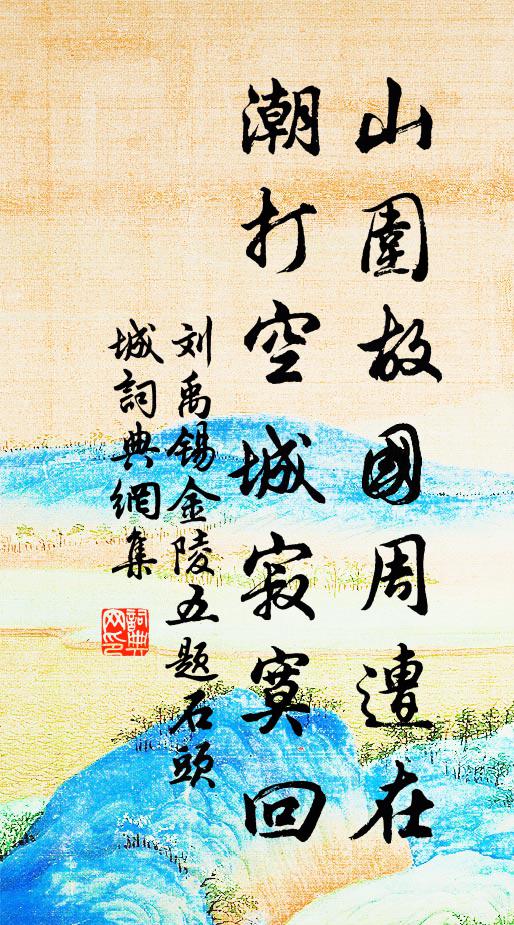 山圍故國周遭在
潮打空城寂寞回
刘禹锡金陵五题石頭
城詞典網集
詞典
网印